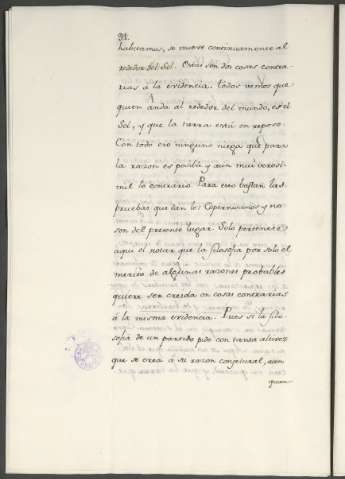 habitamos, se mueve continuamente al
rededor del Sol. Otras son dos cosas contra-
rias à la evidencia. Todos vemos que
quien anda al rededor del mundo, es el
Sol, y que la tierra està en reposo.
Con todo eso ninguno niega que para
la razon es posible y aun mui verosi-
mil lo contrario. Para esto bastan las
pruebas que dan los Copernicanos y no
son del presente lugar. Solo pertenece
aqui el notar que la filosofia por solo el
merito de algunas razones probables
quiere ser creida en cosas contrarias
à la misma evidencia. Pues si la filo-
sofia de un partido pide con tanta altivez
que se crea à su razon conjetural, aun
quan-